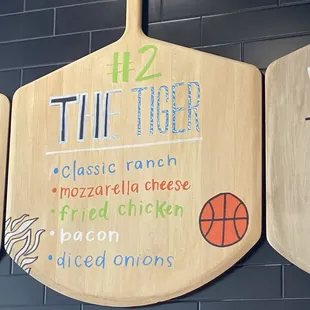 #2
THE TIGER
• classic ranch
• mozzarella cheese
• fried chicken
• bacon
• diced onions